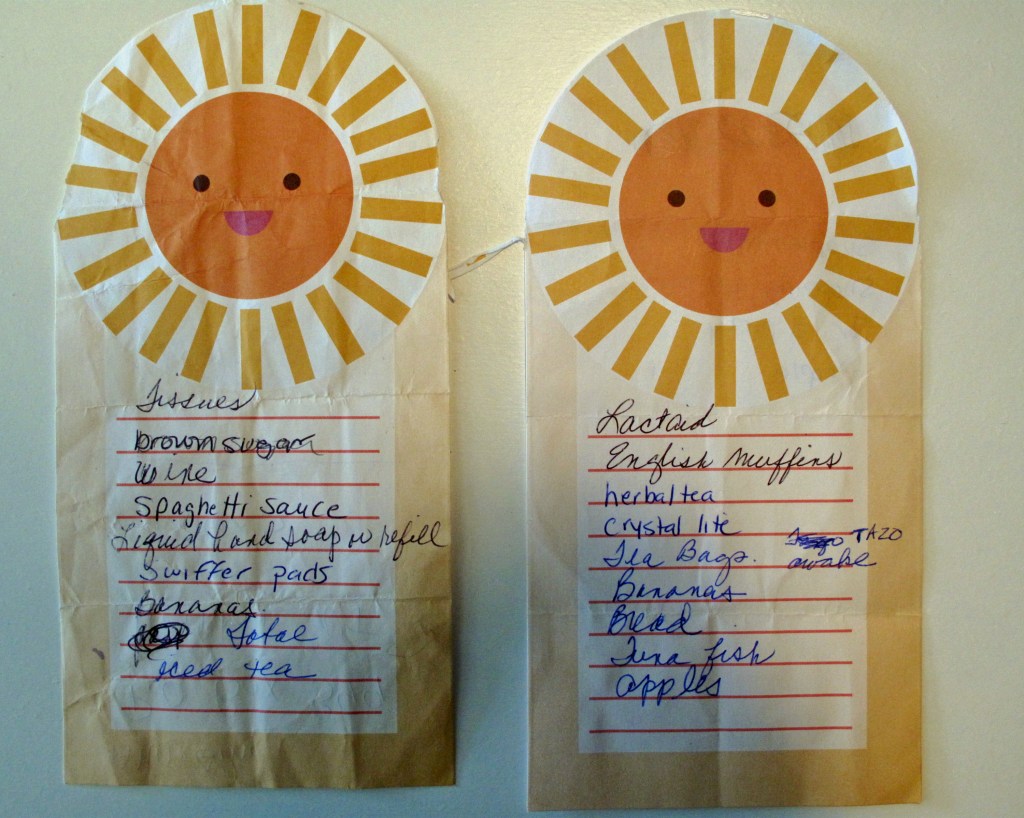 Tissues
brown sugar
wine
spaghetti sauce
Liquid hand soap or refill
Swiffer pads
Bananas
Total
iced tea
Lactaid
English muffins
herbal tea
crystal lite
Tea Bags. TAZO
awake
Bananas
Bread
Tuna fish
apples